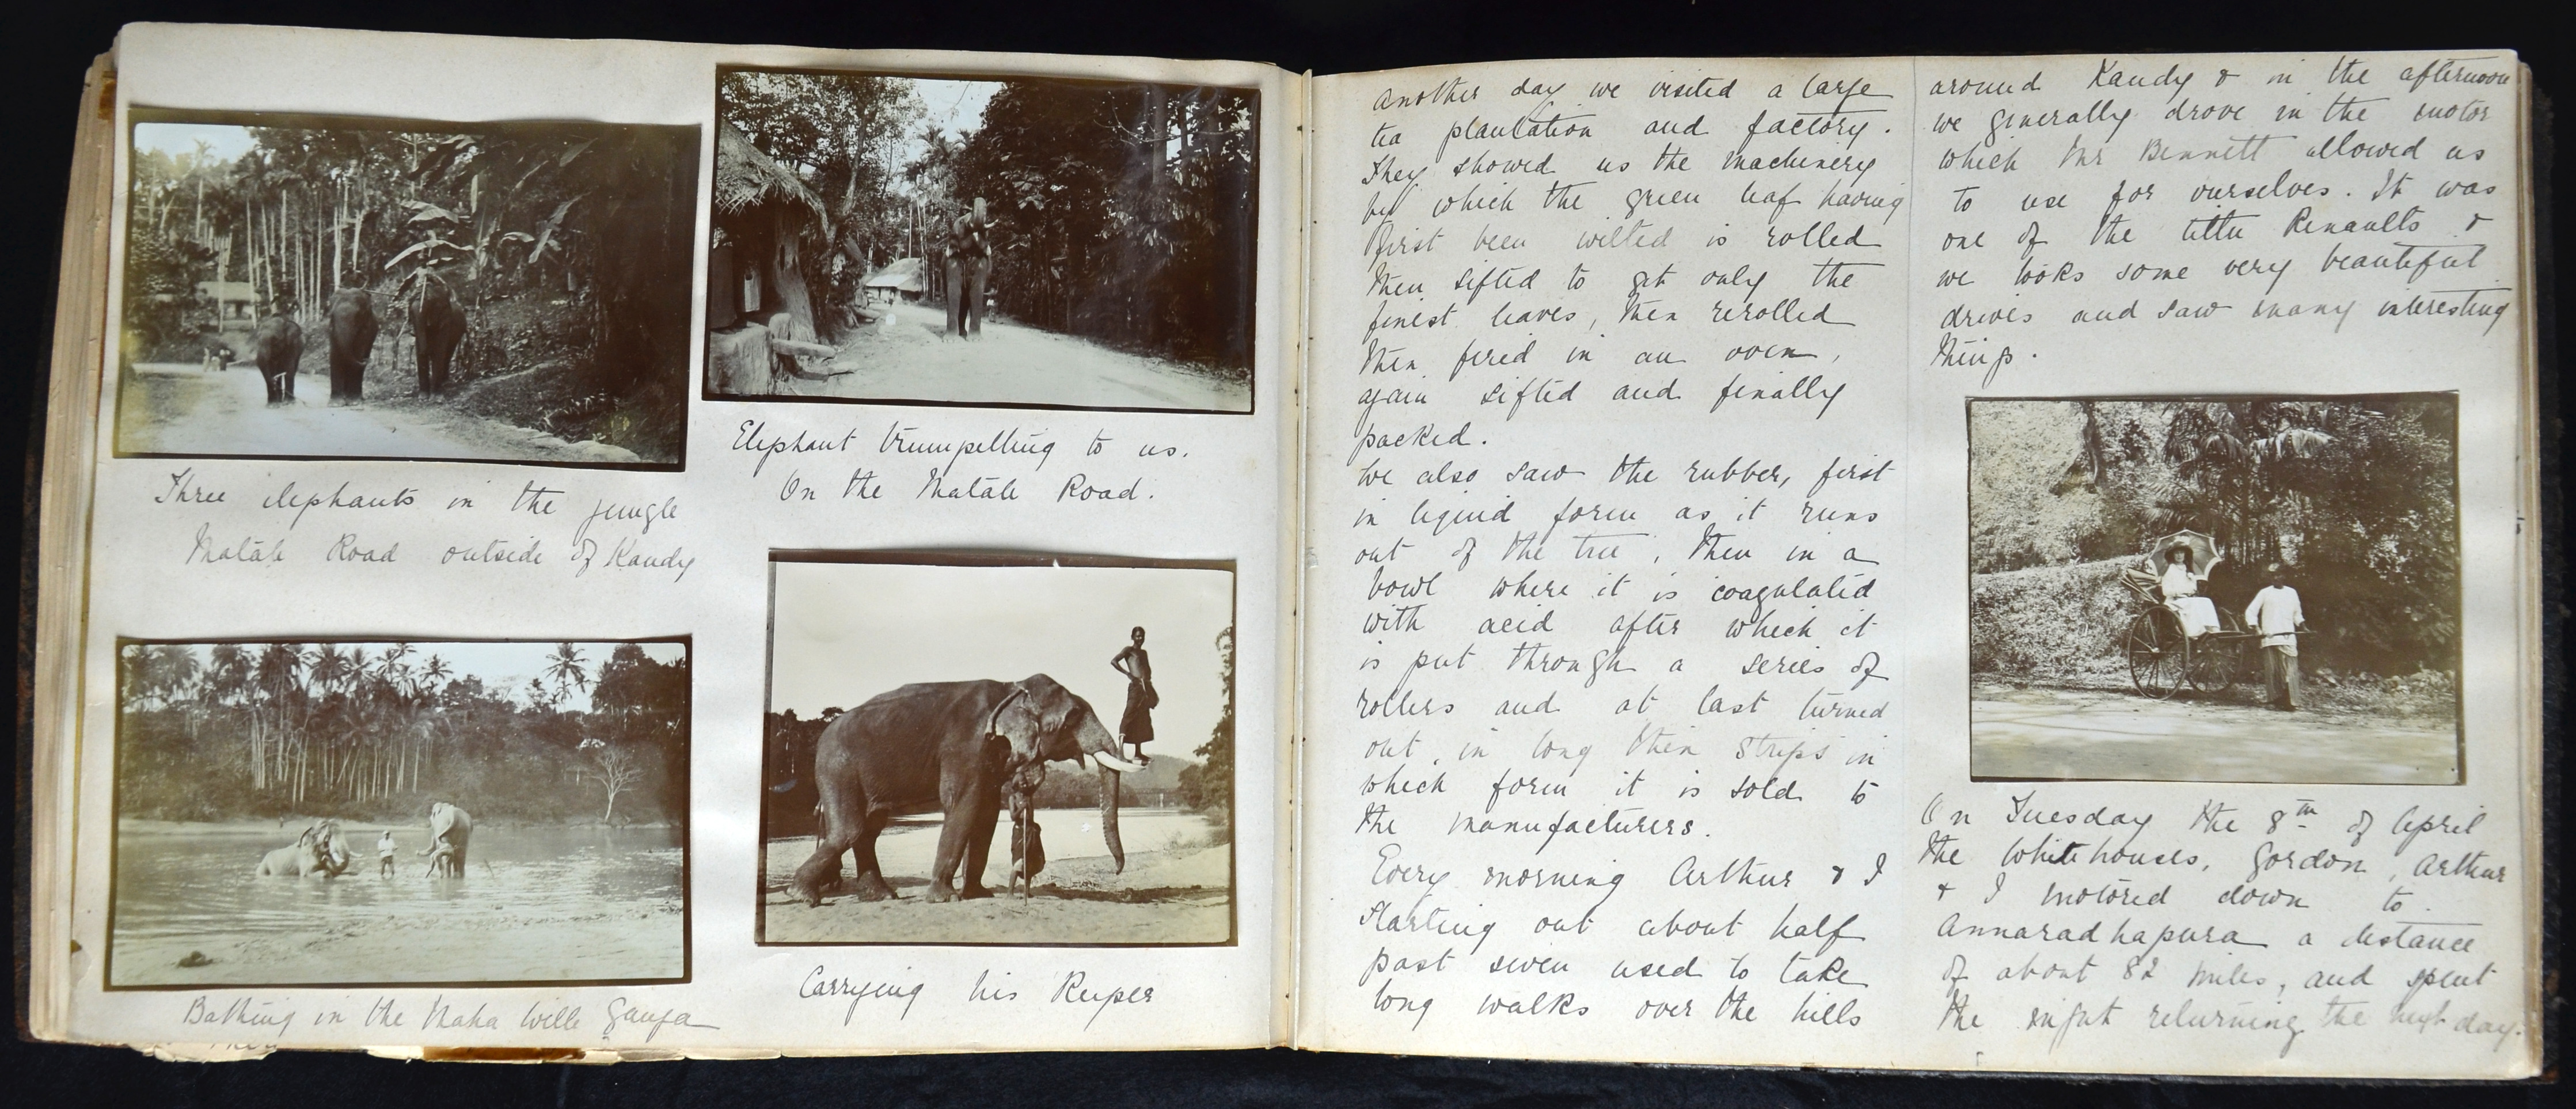 Three elephants in the jungle
Matale Road outside of Kandy
Elephant trumpetting to us.
On the Matale Road.
Bathing in the Maha Wille Ganga
Carrying his Keeper
Another day we visited a large
tea plantation and factory.
They showed us the machinery
by which the green leaf having
first been wilted is rolled
then sifted to get only the
finest leaves, then rerolled
then fired in an oven,
again sifted and finally
packed.
We also saw the rubber, first
in liquid form as it runs
out of the tree, then in a
bowl where it is coagulated
with acid after which it
is put through a series of
rollers and at last turned
out, in long thin strips in
which form it is sold to
the manufacturers.
Every morning Arthur & I
starting out about half
past seven used to take
long walks over the hills
around Kandy & in the afternoon
we generally drove in the motor
which Mr Bennett allowed us
to use for ourselves. It was
one of the little Renaults &
we tooks some very beautiful
drives and saw many interesting
things.
On Tuesday the 8th of April
the Whitehouses, Gordon, Arthur
& I motored down to
Annaradhapura a distance
of about 82 miles, and spent
the night returning the next day.